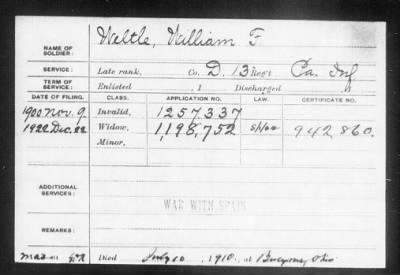 NAME OF SOLDIER: Weltle, William F
SERVICE: Late rank, Co. D. 13 Reg't Pa. Inf
TERM OF SERVICE: Enlisted , 1 Discharged
DATE OF FILING. CLASS. APPLICATION NO. LAW. CERTIFICATE NO.
1900 Nov. 9. Invalid, 1257,337
1922 Dec. 22 Widow, 1,198,752 942,860.
Minor,
ADDITIONAL SERVICES:
WAR WITH SPAIN
REMARKS:
Died July 10, 1910, at Bucyrus, Ohio